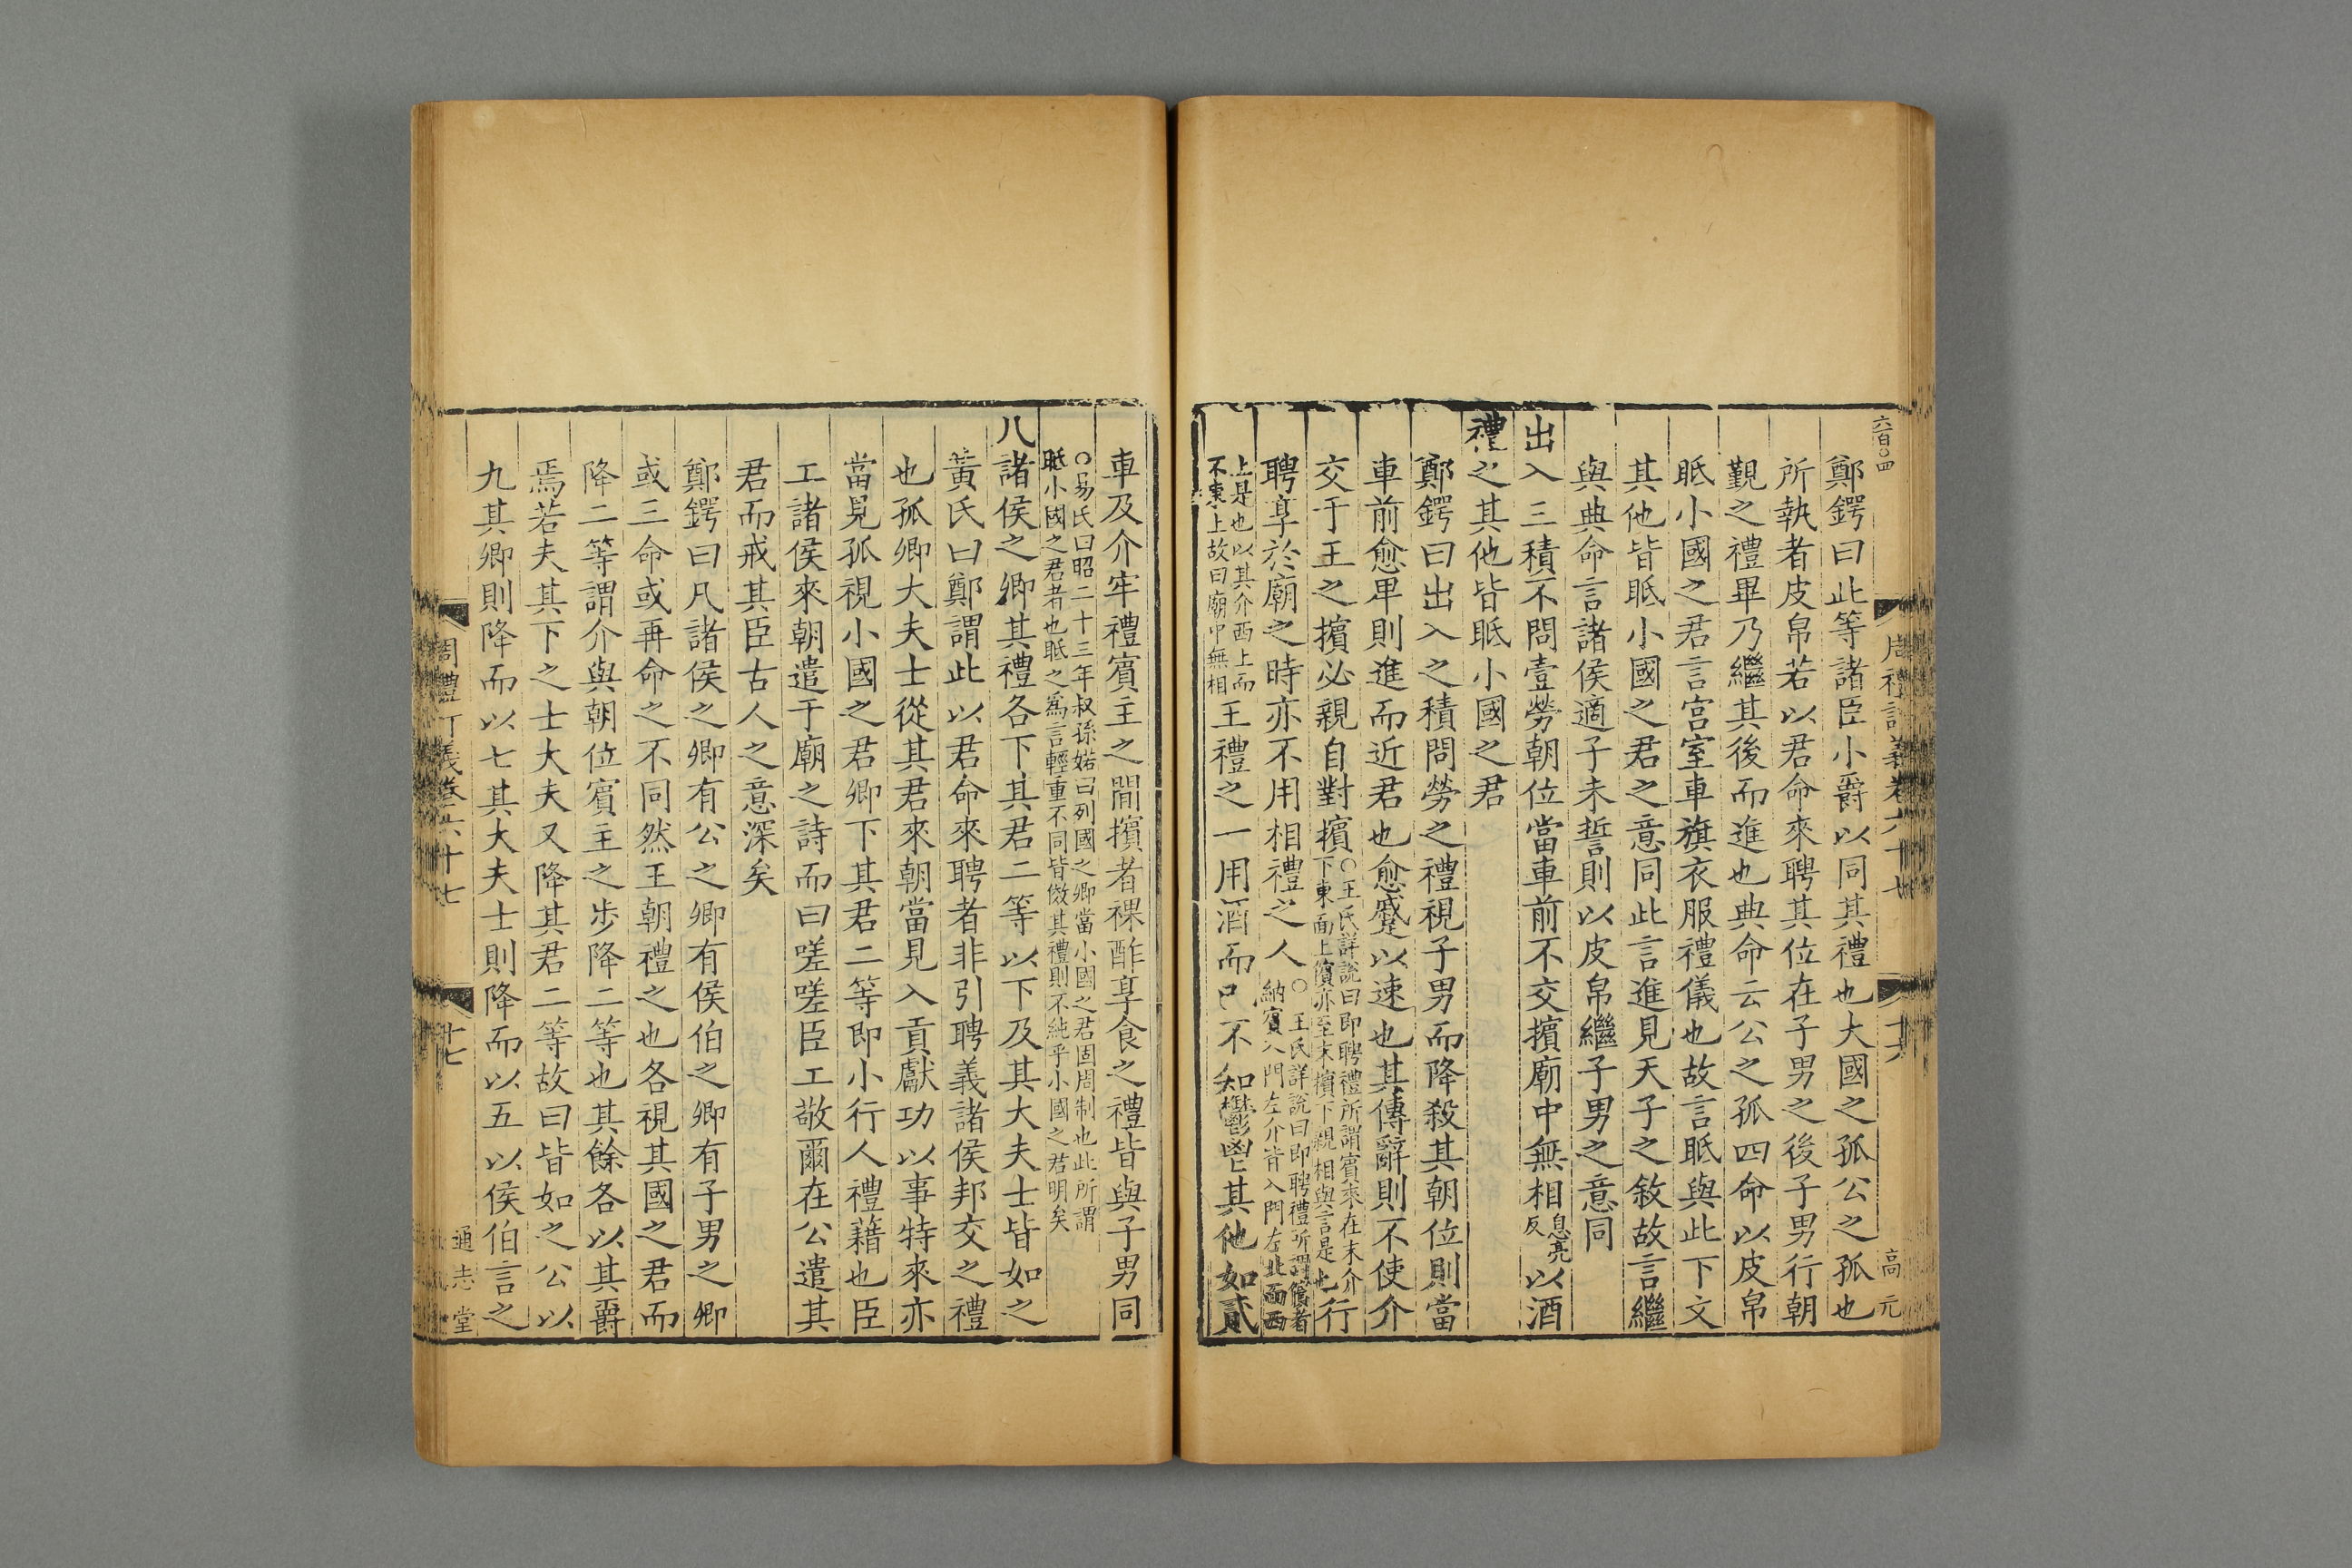 六百〇四
鄭鍔曰此等諸臣小爵以同其禮也大國之孤公之孤也
所執者皮帛若以君命來聘其位在子男之後子男行朝
覲之禮畢乃繼其後而進也典命云公之孤四命以皮帛
眡小國之君言宮室車旗衣服禮儀也故言眡與此下文
其他皆眡小國之君之意同此言進見天子之敘故言繼
與典命言諸侯適子未誓則以皮帛繼子男之意同
出入三積不問壹勞朝位當車前不交擯廟中無相息亮反以酒
禮之其他皆眡小國之君
鄭鍔曰出入之積問勞之禮視子男而降殺其朝位則當
車前愈卑則進而近君也愈蹙以速也其傳辭則不使介
交于王之擯必親自對擯〇王氏詳說曰即聘禮所謂賓來在末介下東面上擯亦至末擯下親相與言是也行
聘享於廟之時亦不用相禮之人〇王氏詳說曰即聘禮所謂擯者納賓入門左介皆入門左北面西
上是也以其介西上而不東上故曰廟中無相王禮之一用酒而已不和鬱鬯其他如貳
周禮訂義卷六十七
十六
高元
車及介牢禮賓主之間擯者祼酢享食之禮皆與子男同
〇易氏曰昭二十三年叔孫婼曰列國之卿當小國之君固周制也此所謂眡小國之君者也眡之為言輕重不同皆倣其禮則不純乎小國之君明矣
八諸侯之卿其禮各下其君二等以下及其大夫士皆如之
黃氏曰鄭謂此以君命來聘者非引聘義諸侯邦交之禮
也孤卿大夫士從其君來朝當見入貢獻功以事特來亦
當見孤視小國之君卿下其君二等即小行人禮籍也臣
工諸侯來朝遣于廟之詩而曰嗟嗟臣工敬爾在公遣其
君而戒其臣古人之意深矣
鄭鍔曰凡諸侯之卿有公之卿有侯伯之卿有子男之卿
或三命或再命之不同然王朝禮之也各視其國之君而
降二等謂介與朝位賓主之步降二等也其餘各以其爵
焉若夫其下之士大夫又降其君二等故曰皆如之公以
九其卿則降而以七其大夫士則降而以五以侯伯言之
周禮訂義卷六十七
十七
通志堂